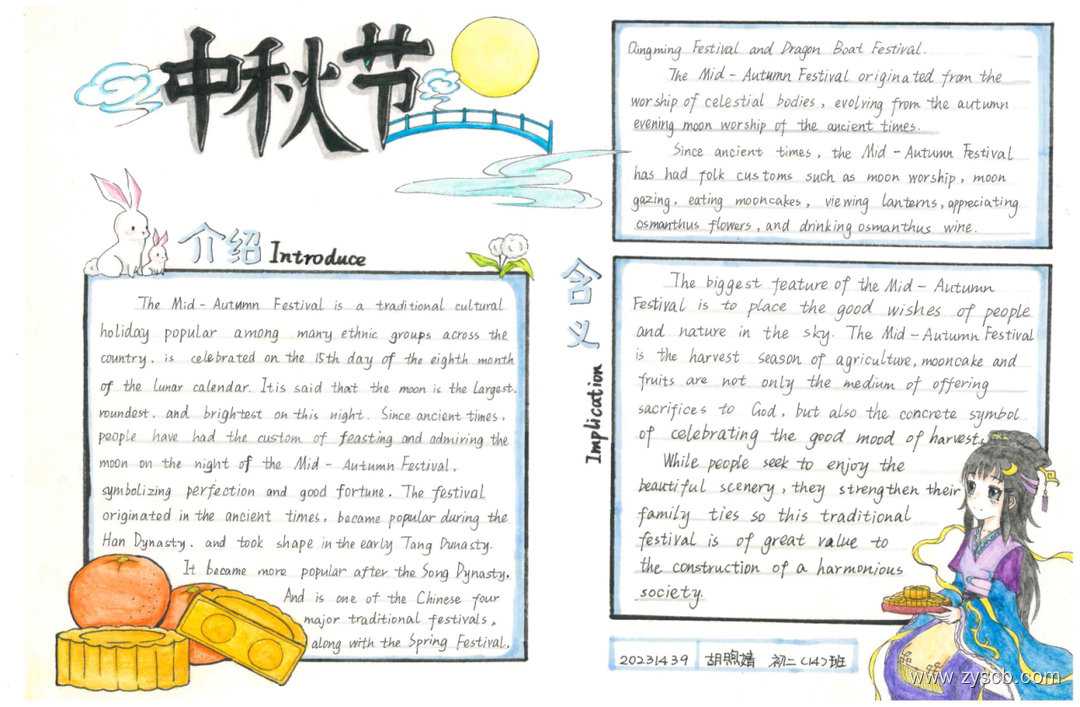 中秋节
介绍 Introduce
The Mid-Autumn Festival is a traditional cultural
holiday popular among many ethnic groups across the
country. is celebrated on the 15th day of the eighth month
of the lunar calendar. It is said that the moon is the largest.
roundest. and brightest on this night. Since ancient times.
people have had the custom of feasting and admiring the
moon on the night of the Mid-Autumn Festival.
symbolizing perfection and good fortune. The festival
originated in the ancient times, became popular during the
Han Dynasty. and took shape in the early Tang Dunasty.
It became more popular after the Song Dynasty.
And is one of the Chinese four
major traditional festivals,
along with the Spring Festival,
Qingming Festival and Dragon Boat Festival.
The Mid-Autumn Festival originated from the
worship of celestial bodies, evolving from the autumn
evening moon worship of the ancient times.
Since ancient times, the Mid-Autumn Festival
has had folk customs such as moon worship, moon
gazing, eating mooncakes, viewing lanterns, appreciating
osmanthus flowers, and drinking osmanthus wine.
含义
Implication
The biggest feature of the Mid-Autumn
Festival is to place the good wishes of people
and nature in the sky. The Mid-Autumn Festival
is the harvest season of agriculture, mooncake and
fruits are not only the medium of offering
sacrifices to God, but also the concrete symbol
of celebrating the good mood of harvest.
While people seek to enjoy the
beautiful scenery, they strengthen their
family ties so this traditional
festival is of great value to
the construction of a harmonious
society.
20231439 胡煦婧 初二(14)班
www.zyscb.com